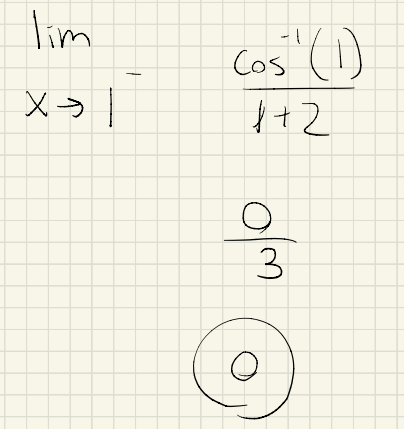 lim x→1⁻ cos⁻¹(1)/(1+2)
0/3
0